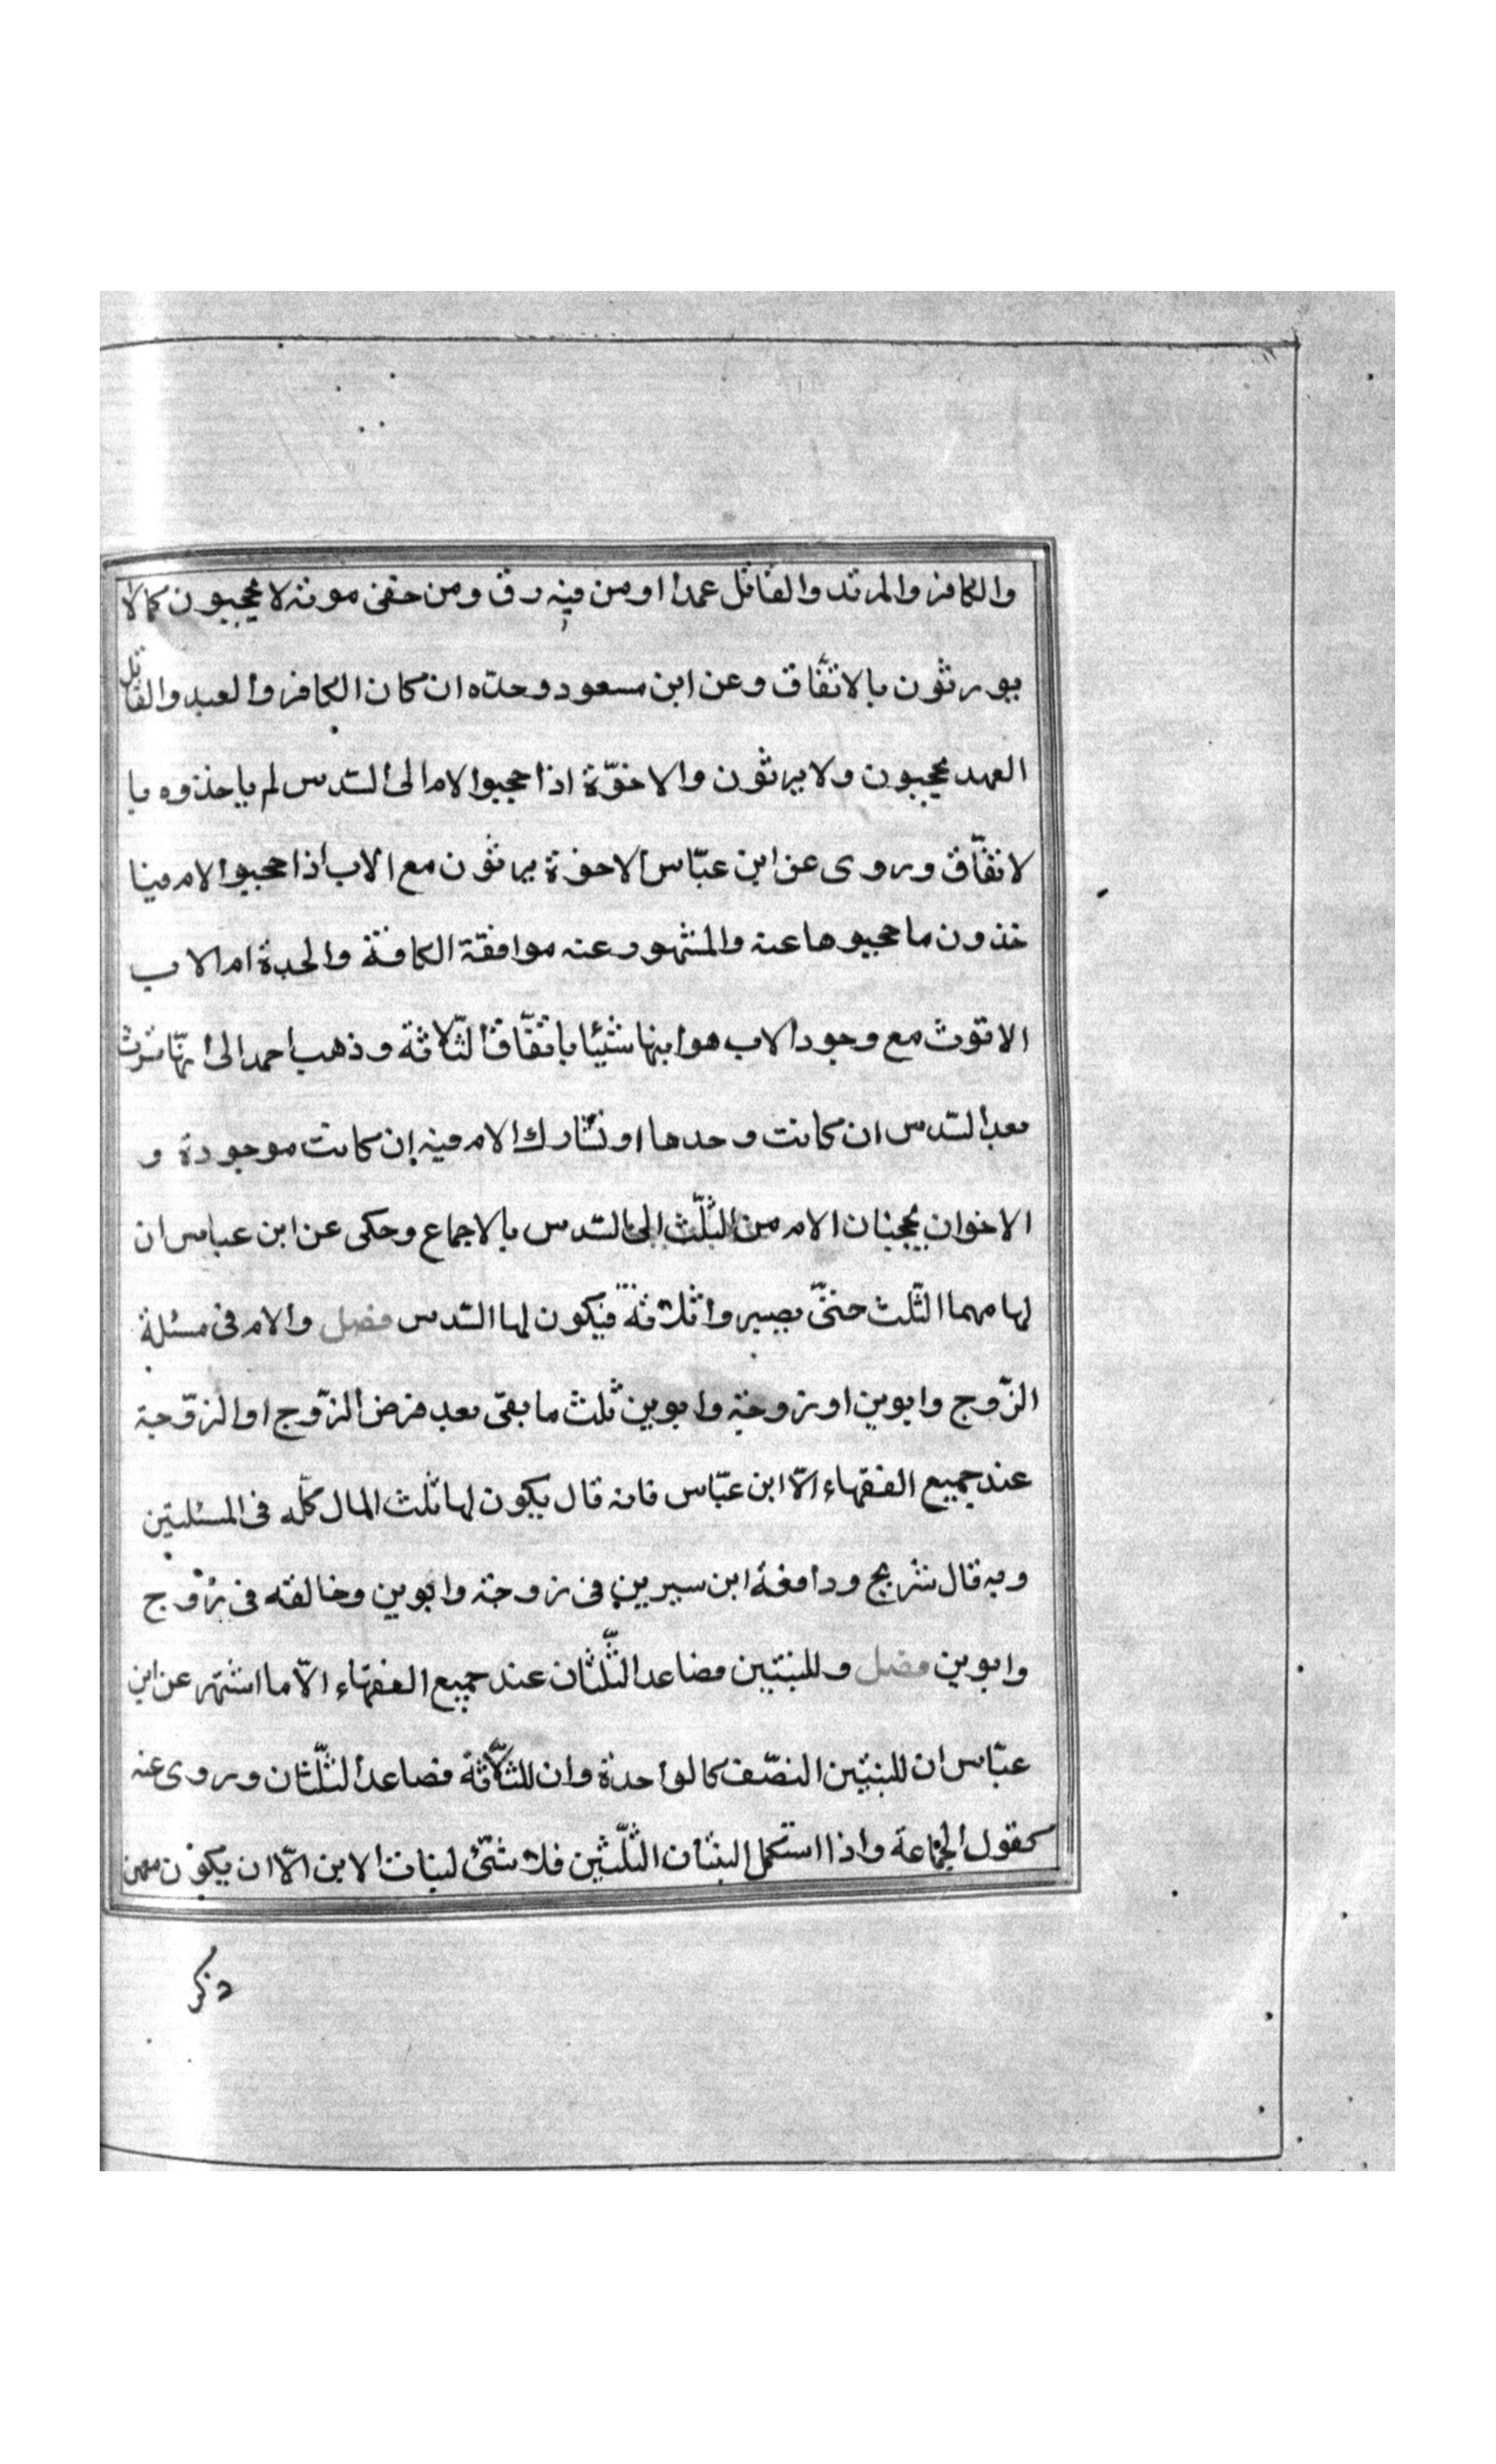 والكافر والمرتد والقاتل عمدا او من فيه رق ومن خفى موته لا يحجبون كما لا
يورثون بالاتفّاق وعن ابن مسعود وحدّه ان كان الكافر والعبد والقاتل
العهد يحجبون ولا يرثون والاخوّة اذا حجبوا الام الى السّدس لم ياخذوه با
لاتفّاق وروى عن ابن عبّاس الاخوة يرثون مع الاب اذا حجبوا الام فيا
خذون ما حجبوها عنه والمشهور عنه موافقة الكافة والجدة ام الاب
لا تورث مع وجود الاب هو ابنها شيئا باتفّاق الثّلاثة وذهب احمد الى انهّا ترث
معه السّدس ان كانت وحدها او تشارك الام فيه ان كانت موجودة و
الاخوان يحجبان الام من الثلّث الى السّدس بالاجماع وحكى عن ابن عباس ان
لها مهما الثّلث حتىّ يصيروا ثلاثة فيكون لها السّدس فصل والام فى مسئلة
الزّوج وابوين او زوجة وابوين ثلث ما بقى بعد فرض الزّوج او الزوّجة
عند جميع الفقهاء الّا ابن عبّاس فانه قال يكون لها ثلث المال كلّه فى المسئلتين
وبه قال شريح ودافعه ابن سيرين فى زوجة وابوين وخالفه فى زوج
وابوين فصل وللبنتين فصاعدا الثلّثان عند جميع الفقهاء الّا ما اشتهر عن ابن
عبّاس ان للبنتين النصّف كالواحدة وان للثلّاثة فصاعدا الثلّثان وروى عنه
كقول الجماعة واذا استكمل البنات الثلّثين فلا شئ لبنات الابن الّا ان يكون معهن
ذكر